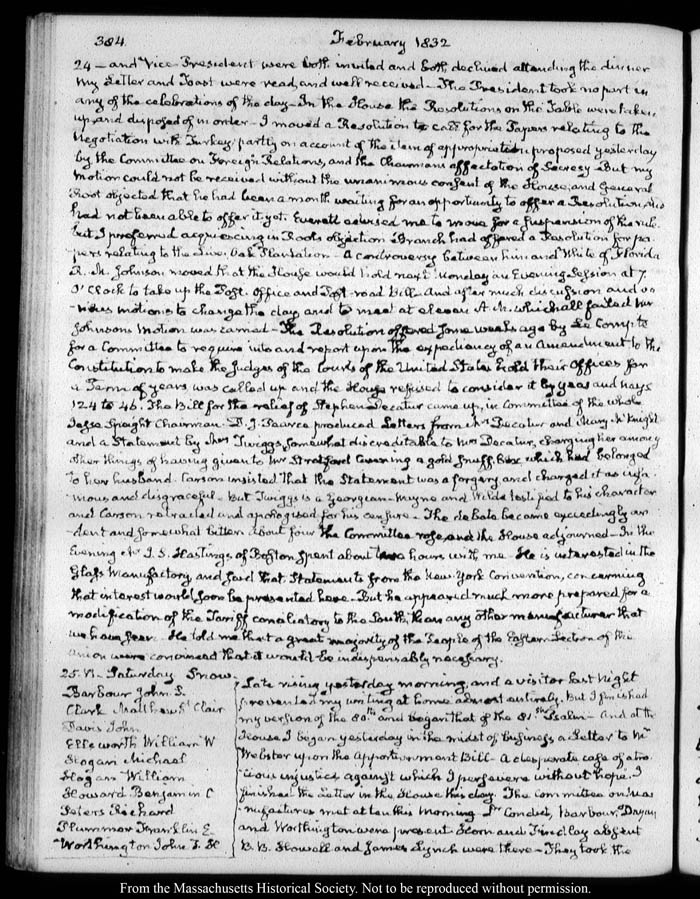 384.
February 1832
24 — and Vice-President were both invited and both declined attending the dinner
My Letter and Toast were read, and well received — The President took no part in
any of the celebrations of the day — In the House the Resolutions on the Table were taken
up and disposed of in order — I moved a Resolution to call for the Papers relating to the
Negotiation with Turkey, partly on account of the item of appropriation proposed yesterday
by the Committee on Foreign Relations, and the Chairman's affectation of Secresy — But my
motion could not be received without the unanimous consent of the House, and General
Root objected that he had been a month waiting for an opportunity to offer a Resolution, and
had not been able to offer it yet. Everett advised me to move for a suspension of the rule.
but I preferred acquiescing in Roots objection Branch had offered a Resolution for pa-
pers relating to the Live Oak Plantation — A controversy between him and White of Florida
R. M. Johnson moved that the House would hold next Monday an Evening Session at 7.
O'Clock to take up the Post-Office and Post-road Bill — And after much discussion and va-
rious motions to change the day and to meet at eleven A.M. which all failed Mr
Johnsons Motion was carried — The Resolution offered some weeks ago by Le Compte
for a Committee to enquire into and report upon the expediency of an Amendment to the
Constitution to make the Judges of the Courts of the United States hold their Offices for
a Term of years was called up and the House refused to consider it by yeas and nays
124 to 46. The Bill for the relief of Stephen Decatur came up, in Committee of the whole
Jesse Speight Chairman. D. J. Pearce produced Letters from Mrs Decatur and Mary McKnight
and a Statement by Twiggs, somewhat discreditable to Mrs Decatur, charging her among
other things of having given to Mr Stratford Canning a gold snuff Box which had belonged
to her husband. Carson insisted that the Statement was a forgery and charged it as infa-
mous and disgraceful — But Twiggs is a Georgian — Wayne and Wilde testified to his character
and Carson retracted and apologised for his censure — The debate became exceedingly ar-
dent and somewhat bitter. about four the Committee rose, and the House adjourned — In the
Evening Mr J. S. Hastings of Boston spent about two hours with me — He is interested in the
Glass Manufactory, and said that Statements from the New-York Convention, concerning
that interest would soon be presented here. But he appeared much more prepared for a
modification of the Tariff conciliatory to the South, than any other manufacturer that
we have seen. He told me that a great majority of the People of the Eastern Section of the
Union were convinced that it would be indispensably necessary.
25. VI. Saturday Snow.
Barbour John S.
Clark Matthew St Clair
Davis John
Ellsworth William W
Hogan Michael
Hogan William
Howard Benjamin C
Peters Richard
Plummer Franklin E
Worthington John T. H
Late rising yesterday morning, and a visitor last Night
prevented my writing at home almost entirely. But I finished
my version of the 80th and began that of the 81st Psalm — And at the
House I began yesterday in the midst of business a Letter to Mr
Webster upon the Apportionment Bill — A desperate case of atro-
cious injustice against which I persevere without hope. I
finished the Letter in the House this day. The Committee on Ma-
nufactures met at ten this Morning — Dr Condict, Barbour, Dayan
and Worthington were present — Horn and Findlay absent
B. B. Howell and James Lynch were there — They took the
From the Massachusetts Historical Society. Not to be reproduced without permission.